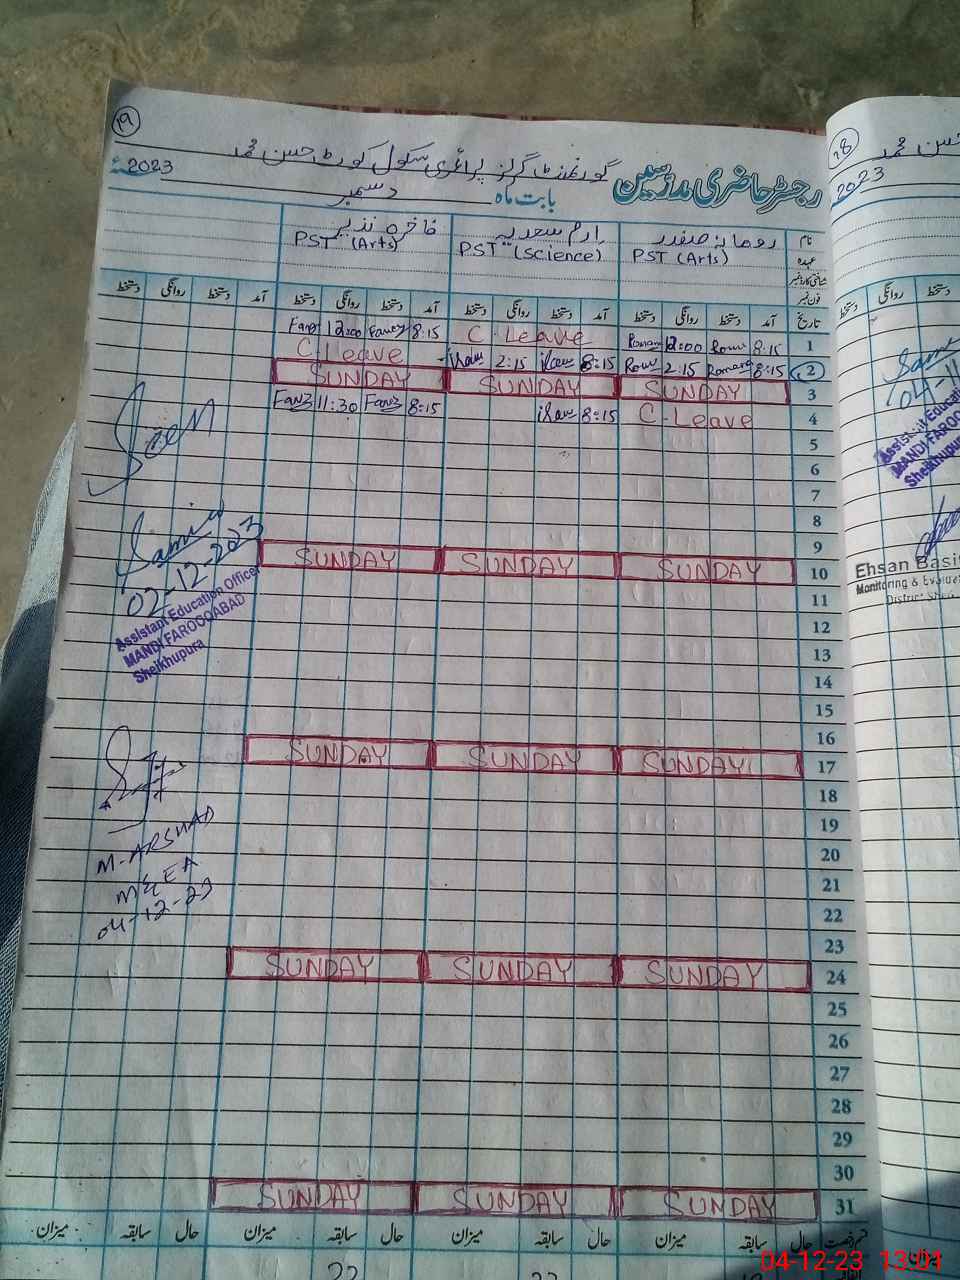 ۱۹
گورنمنٹ گرلز پرائمری سکول کوٹ حسن محمد
رجسٹر حاضری مدرسین
بابت ماہ دسمبر 2023ء
نام رومانہ صفدر ارم سعدیہ فاخرہ نذیر
عہدہ PST (Arts) PST (Science) PST (Arts)
شناختی کارڈ نمبر
فون نمبر
تاریخ آمد دستخط روانگی دستخط آمد دستخط روانگی دستخط آمد دستخط روانگی دستخط آمد دستخط روانگی دستخط
1 8:15 12:00 C-Leave 8:15 12:00
2 8:15 2:15 8:15 2:15 C-Leave
3 SUNDAY SUNDAY SUNDAY
4 C-Leave 8:15 8:15 11:30
5
6
7
8
9
10 SUNDAY SUNDAY SUNDAY
11
12
13
14
15
16
17 SUNDAY SUNDAY SUNDAY
18
19
20
21
22
23
24 SUNDAY SUNDAY SUNDAY
25
26
27
28
29
30
31 SUNDAY SUNDAY SUNDAY
حال سابقہ میزان حال سابقہ میزان حال سابقہ میزان حال سابقہ میزان
Seen
02-12-2023
Assistant Education Officer
MANDI FAROOQABAD
Sheikhupura
M-ARSHAD
M&EA
04-12-23
2023
روانگی دستخط
Assistant Educatio
MANDI FAROO
Sheikhupu
Ehsan Basi
Monitoring & Evalua
میزان
04-12-23 13:01